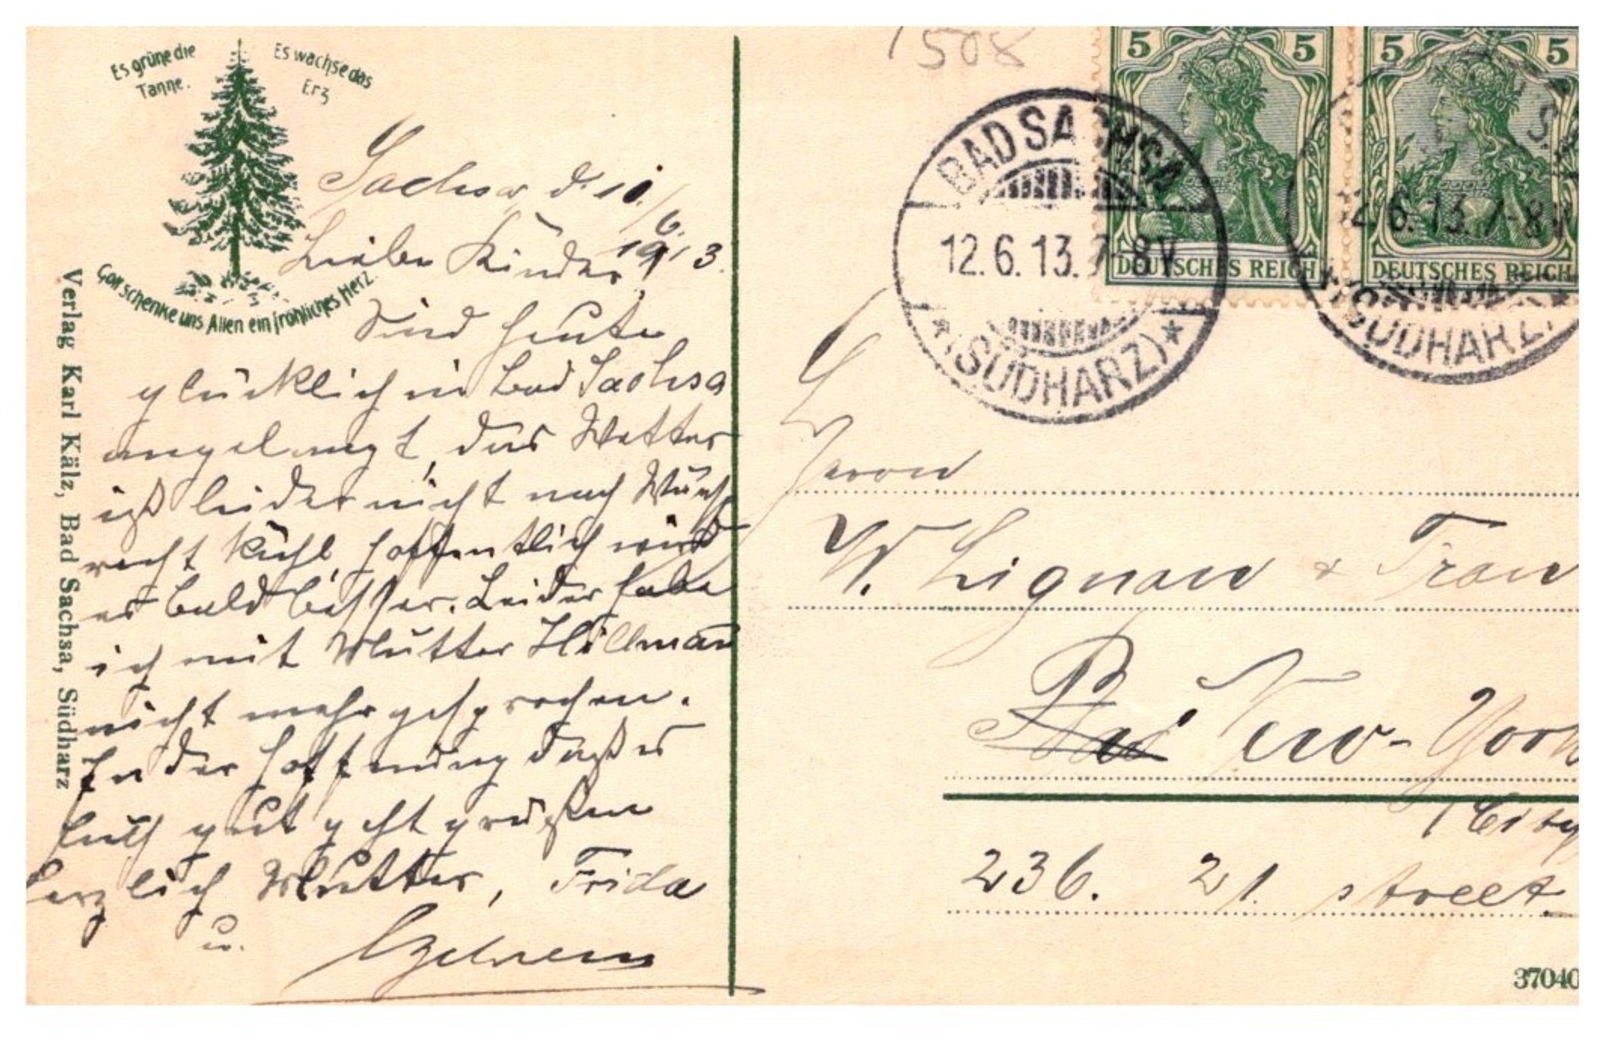 Es grüne die
Tanne.
Es wachse das
Erz
Gott schenke uns Allen ein fröhliches Herz.
Verlag Karl Kälz, Bad Sachsa, Südharz
Sachsa d. 11./6. 1913.
Lieben Kinder
Sind heute
glücklich in Bad Sachsa
angelangt, das Wetter
ist leider nicht nach Wunsch
recht kühl, hoffentlich wird
es bald besser. Leider habe
ich mit Mutter Hillman
nicht mehr gesprochen.
In der Hoffnung daß es
Euch gut geht grüßen
herzlich Mutter, Frida
u.
1508
5 5
5 5
DEUTSCHES REICH
DEUTSCHES REICH
BAD SACHSA
12.6.13.7-8V
* (SÜDHARZ) *
12.6.13.7-8V
(SÜDHARZ) *
Herrn
W. Lignau & Frau
New-York
(City
236. 21. street
37040